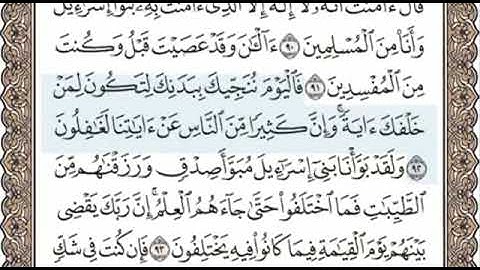 قَالَ ءَامَنتُ أَنَّهُۥ لَآ إِلَٰهَ إِلَّا ٱلَّذِىٓ ءَامَنَتْ بِهِۦ بَنُوٓا۟ إِسْرَٰٓءِيلَ
وَأَنَا۠ مِنَ ٱلْمُسْلِمِينَ ٩٠ ءَآلْـَٰٔنَ وَقَدْ عَصَيْتَ قَبْلُ وَكُنتَ
مِنَ ٱلْمُفْسِدِينَ ٩١ فَٱلْيَوْمَ نُنَجِّيكَ بِبَدَنِكَ لِتَكُونَ لِمَنْ
خَلْفَكَ ءَايَةً ۚ وَإِنَّ كَثِيرًا مِّنَ ٱلنَّاسِ عَنْ ءَايَٰتِنَا لَغَٰفِلُونَ
٩٢ وَلَقَدْ بَوَّأْنَا بَنِىٓ إِسْرَٰٓءِيلَ مُبَوَّأَ صِدْقٍ وَرَزَقْنَٰهُم مِّنَ
ٱلطَّيِّبَٰتِ فَمَا ٱخْتَلَفُوا۟ حَتَّىٰ جَآءَهُمُ ٱلْعِلْمُ ۚ إِنَّ رَبَّكَ يَقْضِى
بَيْنَهُمْ يَوْمَ ٱلْقِيَٰمَةِ فِيمَا كَانُوا۟ فِيهِ يَخْتَلِفُونَ ٩٣ فَإِن كُنتَ فِى شَكٍّ